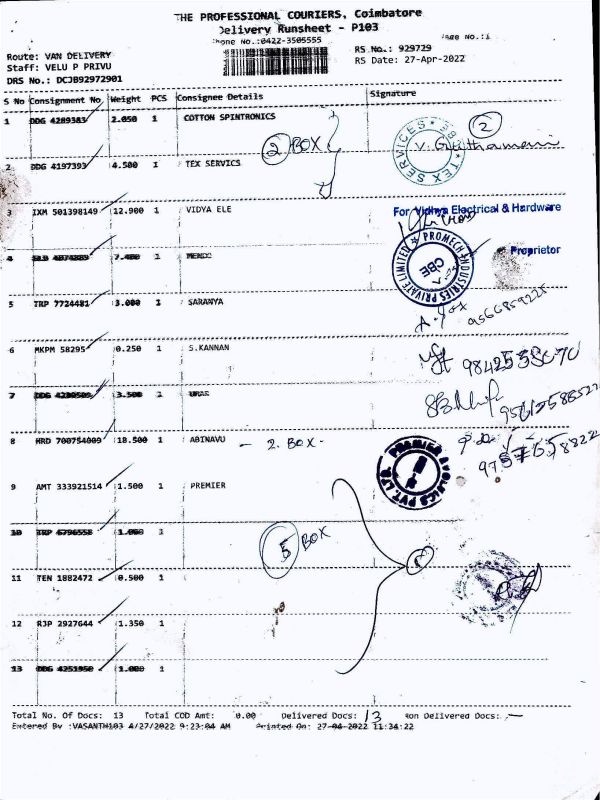 THE PROFESSIONAL COURIERS, Coimbatore
Delivery Runsheet - P103
Phone No.:0422-3505555
Page No.:1
Route: VAN DELIVERY
RS No.: 929729
Staff: VELU P PRIVU
RS Date: 27-Apr-2022
DRS No.: DCJB92972901
S No Consignment No Weight PCS Consignee Details Signature
1 DDG 4289383 2.050 1 COTTON SPINTRONICS
2 BOX
2
TEX SERVICES
2 DDG 4197393 4.500 1 TEX SERVICS
3 IXM 501398149 12.900 1 VIDYA ELE
For Vidhya Electrical & Hardware
Proprietor
PROMECH INDUSTRIES PRIVATE LIMITED
CBE
4 7.400 1
5 TRP 7724481 3.000 1 SARANYA
9566859225
6 MKPM 58295 0.250 1 S.KANNAN
7 3.500 1
8 HRD 700754009 18.500 1 ABINAVU - 2. BOX -
9 AMT 333921514 1.500 1 PREMIER
10 1.000 1
5 BOX
11 TEN 1882472 0.500 1
12 RJP 2927644 1.350 1
13 DDG 4251950 1.000 1
Total No. Of Docs: 13 Total COD Amt: 0.00 Delivered Docs: 13 Non Delivered Docs: -
Entered By :VASANTH103 4/27/2022 9:23:04 AM Printed On: 27-04-2022 11:34:22